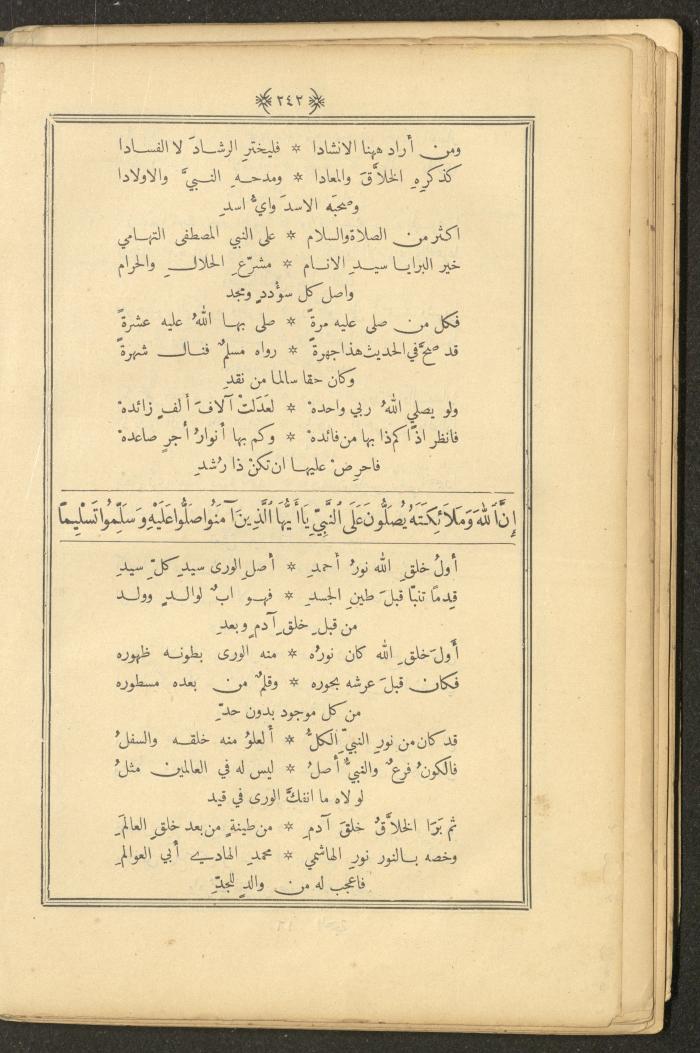 ٢٤٢
ومن أراد ههنا الانشادا * فليختر الرشادَ لا الفسادا
كذكرِهِ الخلاَّقَ والمعادا * ومدحهِ النبيَّ والاولادا
وصحبَه الاسدَ وايُّ اسدِ
اكثر من الصلاة والسلام * على النبي المصطفى التهامي
خير البرايا سيدِ الانام * مشرّعِ الحلالِ والحرام
واصل كل سؤددٍ ومجد
فكل من صلى عليه مرةً * صلى بها اللهُ عليه عشرةً
قد صحَّ في الحديث هذا جهرةً * رواه مسلمٌ فنال شهرةً
وكان حقا سالما من نقدِ
ولو يصلي اللهُ ربي واحده * لعَدَلتْ آلافَ ألفٍ زائده
فانظر اذًا كم ذا بها من فائده * وكم بها أنوارُ أجرٍ صاعده
فاحرِصْ عليها ان تكنْ ذا رُشدِ
إِنَّ ٱللهَ وَمَلاَئِكَتَهُ يُصَلُّونَ عَلَى ٱلنَّبِيِّ يَا أَيُّهَا ٱلَّذِينَ آمَنُوا صَلُّوا عَلَيْهِ وَسَلِّمُوا تَسْلِيمًا
أولُ خلقِ الله نورُ أحمدِ * أصل الورى سيدِ كلِّ سيدِ
قِدمًا تنبّا قبلَ طينِ الجسدِ * فهو ابٌ لوالدٍ وولد
من قبلِ خلقِ آدمٍ وبعدِ
أولَ خلقِ الله كان نورُه * منه الورى بطونه ظهوره
فكان قبلَ عرشه بحوره * وقلمٌ من بعده مسطوره
من كل موجود بدون حدِّ
قد كان من نورِ النبيِّ الكلُّ * ألعلوُ منه خلقه والسفلُ
فالكونُ فرعٌ والنبيُّ أصلُ * ليس له في العالمين مثلُ
لولاه ما انفكَّ الورى في قيد
ثم بَرَا الخلاَّقُ خلقَ آدمِ * من طينةٍ من بعد خلقِ العالمَِ
وخصه بالنور نورِ الهاشمي * محمدِ الهادي أبي العوالمِ
فاعجب له من والدٍ للجدِّ